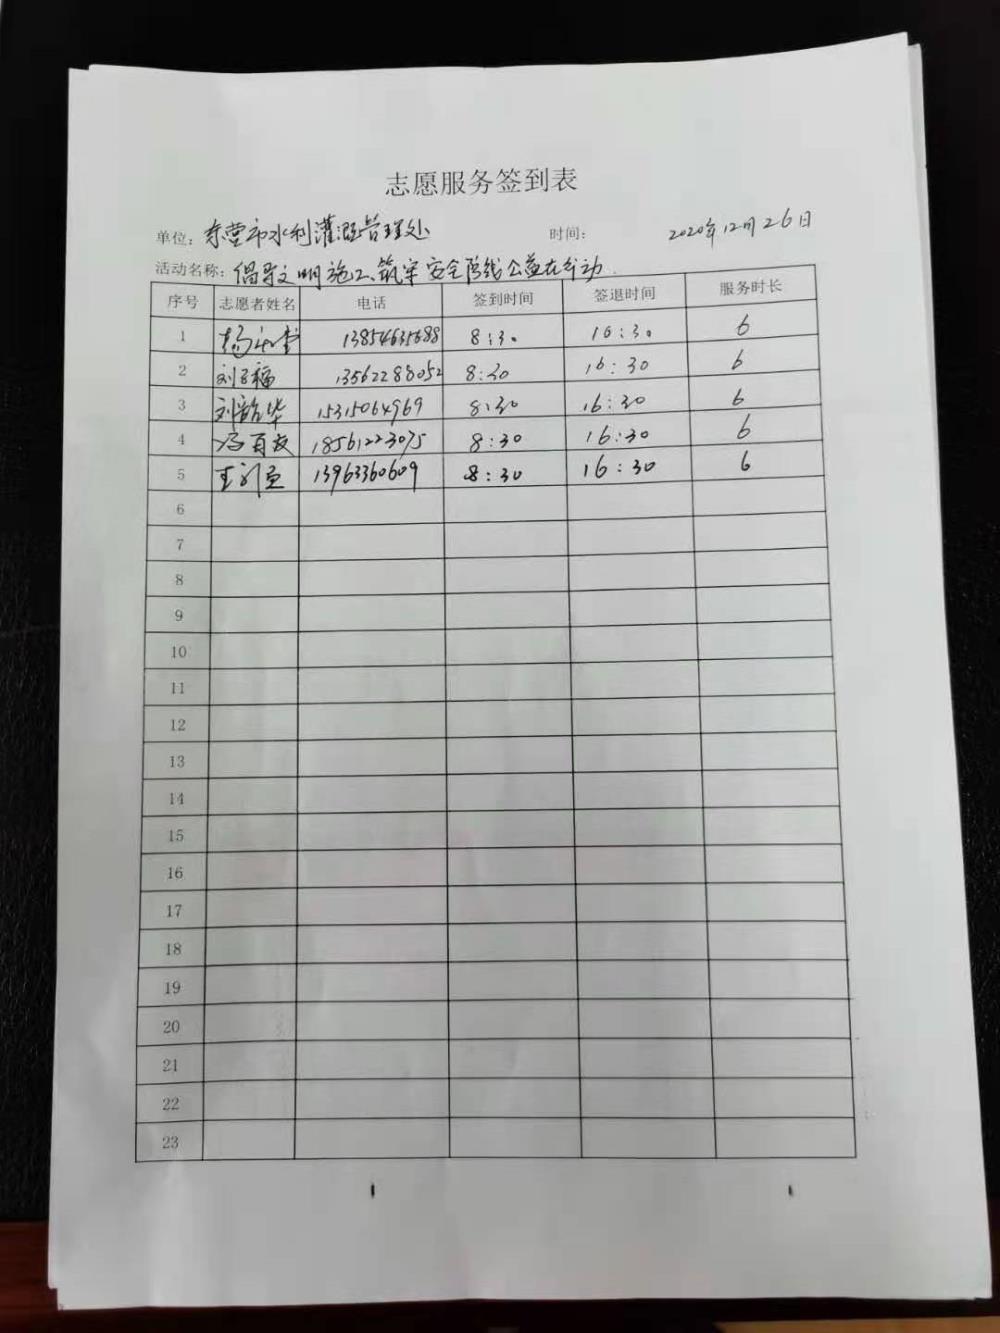 志愿服务签到表
单位：东营市水利灌溉管理处 时间： 2020年12月26日
活动名称：倡导文明施工、筑牢安全防线公益在行动.
序号 志愿者姓名 电话 签到时间 签退时间 服务时长
1 杨 13854635688 8:30 16:30 6
2 刘 福 13562288052 8:30 16:30 6
3 刘韶华 15315064969 8:30 16:30 6
4 冯百友 18561223075 8:30 16:30 6
5 王 13963360609 8:30 16:30 6
6
7
8
9
10
11
12
13
14
15
16
17
18
19
20
21
22
23